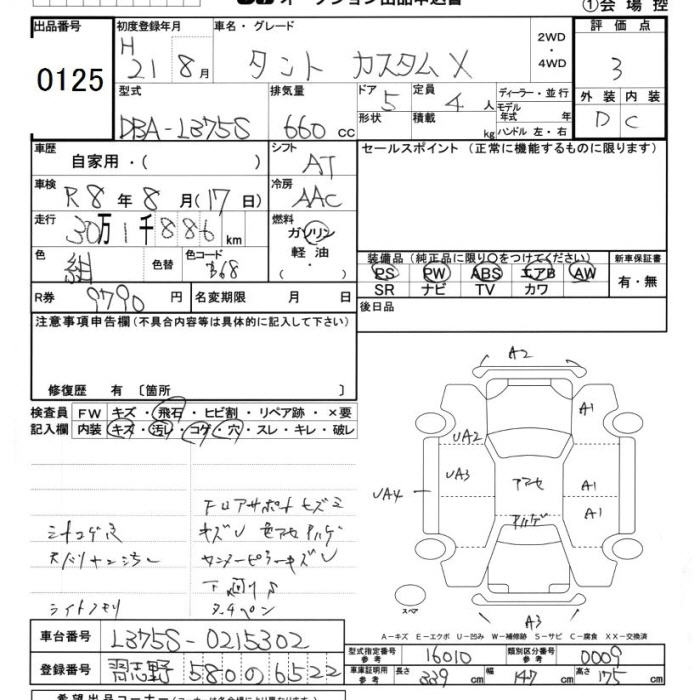 オークション出品申込書
①会場控
出品番号 0125
初度登録年月 H 21 8月
車名・グレード タント カスタムX
2WD・4WD
評価点 3
型式 DBA-L375S
排気量 660 cc
ドア 5
形状
定員 4人
積載 kg
ディーラー・並行
モデル年式 年
ハンドル 左・右
外装 D
内装 C
車歴 自家用・( )
シフト AT
セールスポイント (正常に機能するものに限ります)
車検 R8年8月(17日)
冷房 AAC
走行 30万1千886km
燃料 ガソリン 軽油
色 紺
色替
色コード B68
装備品 (純正品に限り○をつけてください)
PS PW ABS エアB AW
SR ナビ TV カワ
新車保証書 有・無
R券 9790円
名変期限 月 日
後日品
注意事項申告欄(不具合内容等は具体的に記入して下さい)
修復歴 有 〔箇所 〕
検査員記入欄
FW キズ・飛石・ヒビ割・リペア跡・×要
内装 キズ・汚レ・コゲ・穴・スレ・キレ・破レ
フロアサポートキズミ
キズU
下回りS
ライトクモリ
タッチペン
A2
A1
UA2
UA3
UA4
アセ
A1
A1
ハゲ
スペア
A3
A-キズ E-エクボ U-凹み W-補修跡 S-サビ C-腐食 XX-交換済
車台番号 L375S-0215302
型式指定番号 参考 16010
類別区分番号 参考 0009
登録番号 習志野 580 の 6522
車庫証明用 参考 長さ 339 cm 幅 147 cm 高さ 175 cm
希望出品コーナー